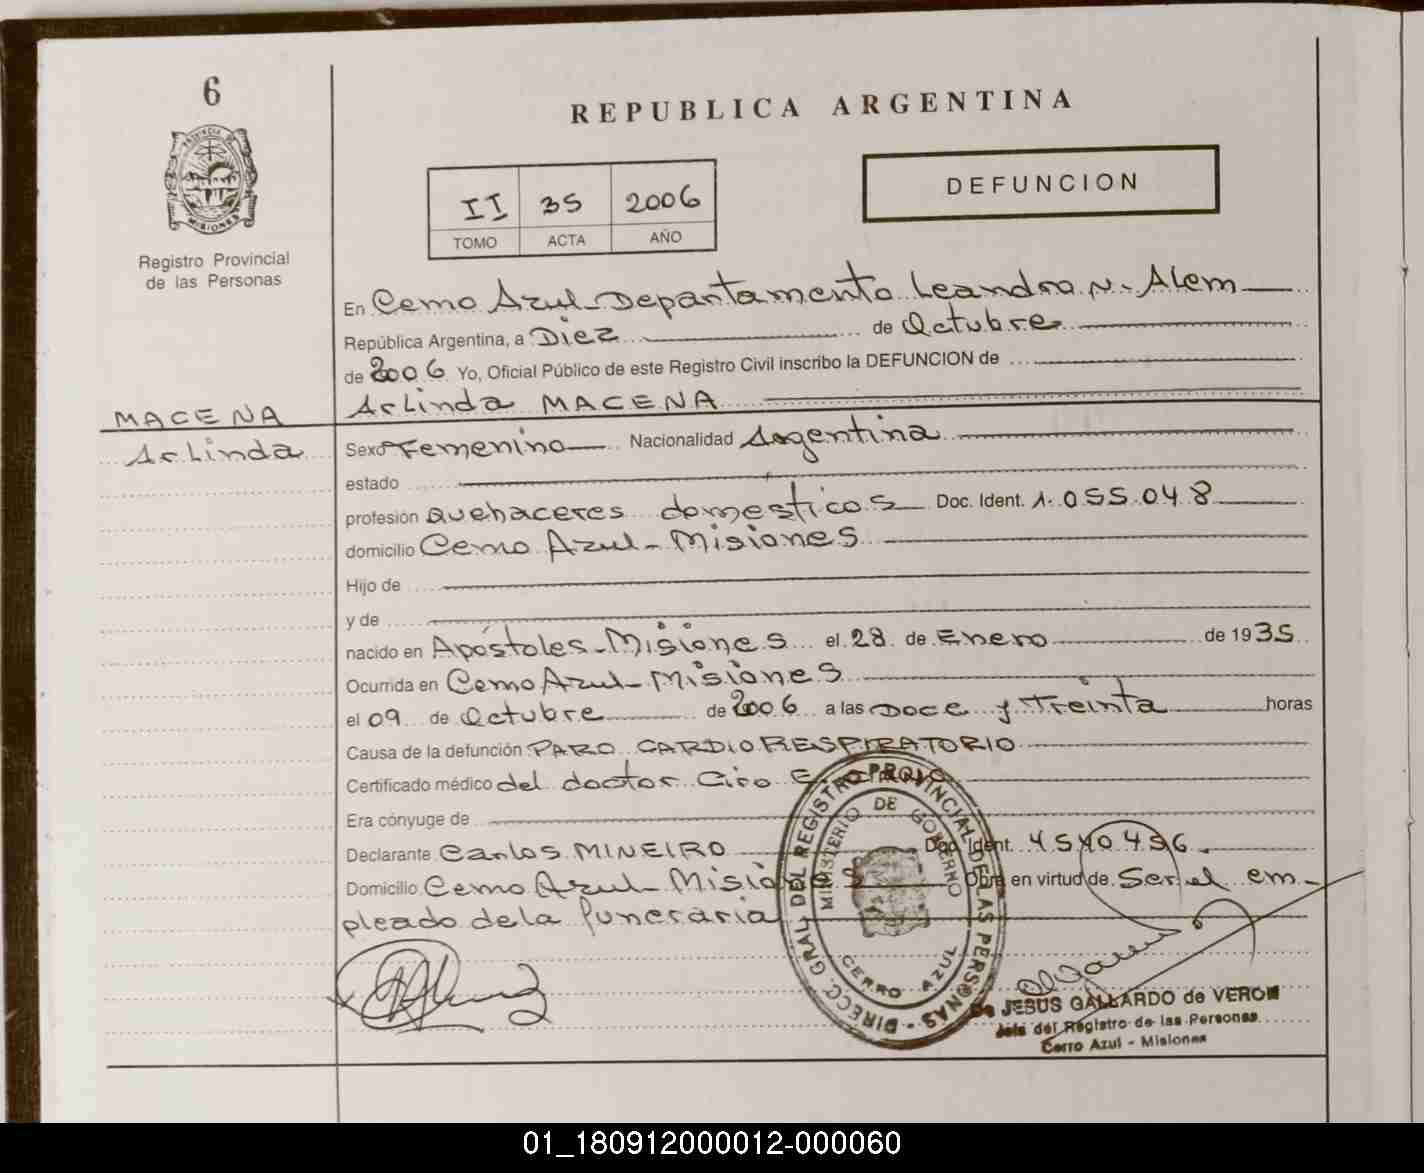 6
PROVINCIA DE
MISIONES
Registro Provincial
de las Personas
REPUBLICA ARGENTINA
II 35 2006
TOMO ACTA AÑO
DEFUNCION
En Cerro Azul - Departamento Leandro N. Alem
República Argentina, a Diez de Octubre
de 2006 Yo, Oficial Público de este Registro Civil inscribo la DEFUNCION de
Arlinda MACENA
MACENA
Arlinda
Sexo Femenino Nacionalidad Argentina
estado
profesión quehaceres domesticos Doc. Ident. 1.055.048
domicilio Cerro Azul - Misiones
Hijo de
y de
nacido en Apóstoles - Misiones el 28 de Enero de 1935
Ocurrida en Cerro Azul - Misiones
el 09 de Octubre de 2006 a las Doce y Treinta horas
Causa de la defunción PARO CARDIO RESPIRATORIO
Certificado médico del doctor Ciro E.
Era cónyuge de
Declarante Carlos MINEIRO Doc. Ident. 4540496.
Domicilio Cerro Azul - Misiones Obra en virtud de Ser el em-
pleado de la funeraria
DIRECC. GRAL. DEL REGISTRO PROVINCIAL DE LAS PERSONAS -
MINISTERIO DE GOBIERNO
CERRO AZUL
De JESUS GALLARDO de VERON
Jefe del Registro de las Personas
Cerro Azul - Misiones
01_180912000012-000060